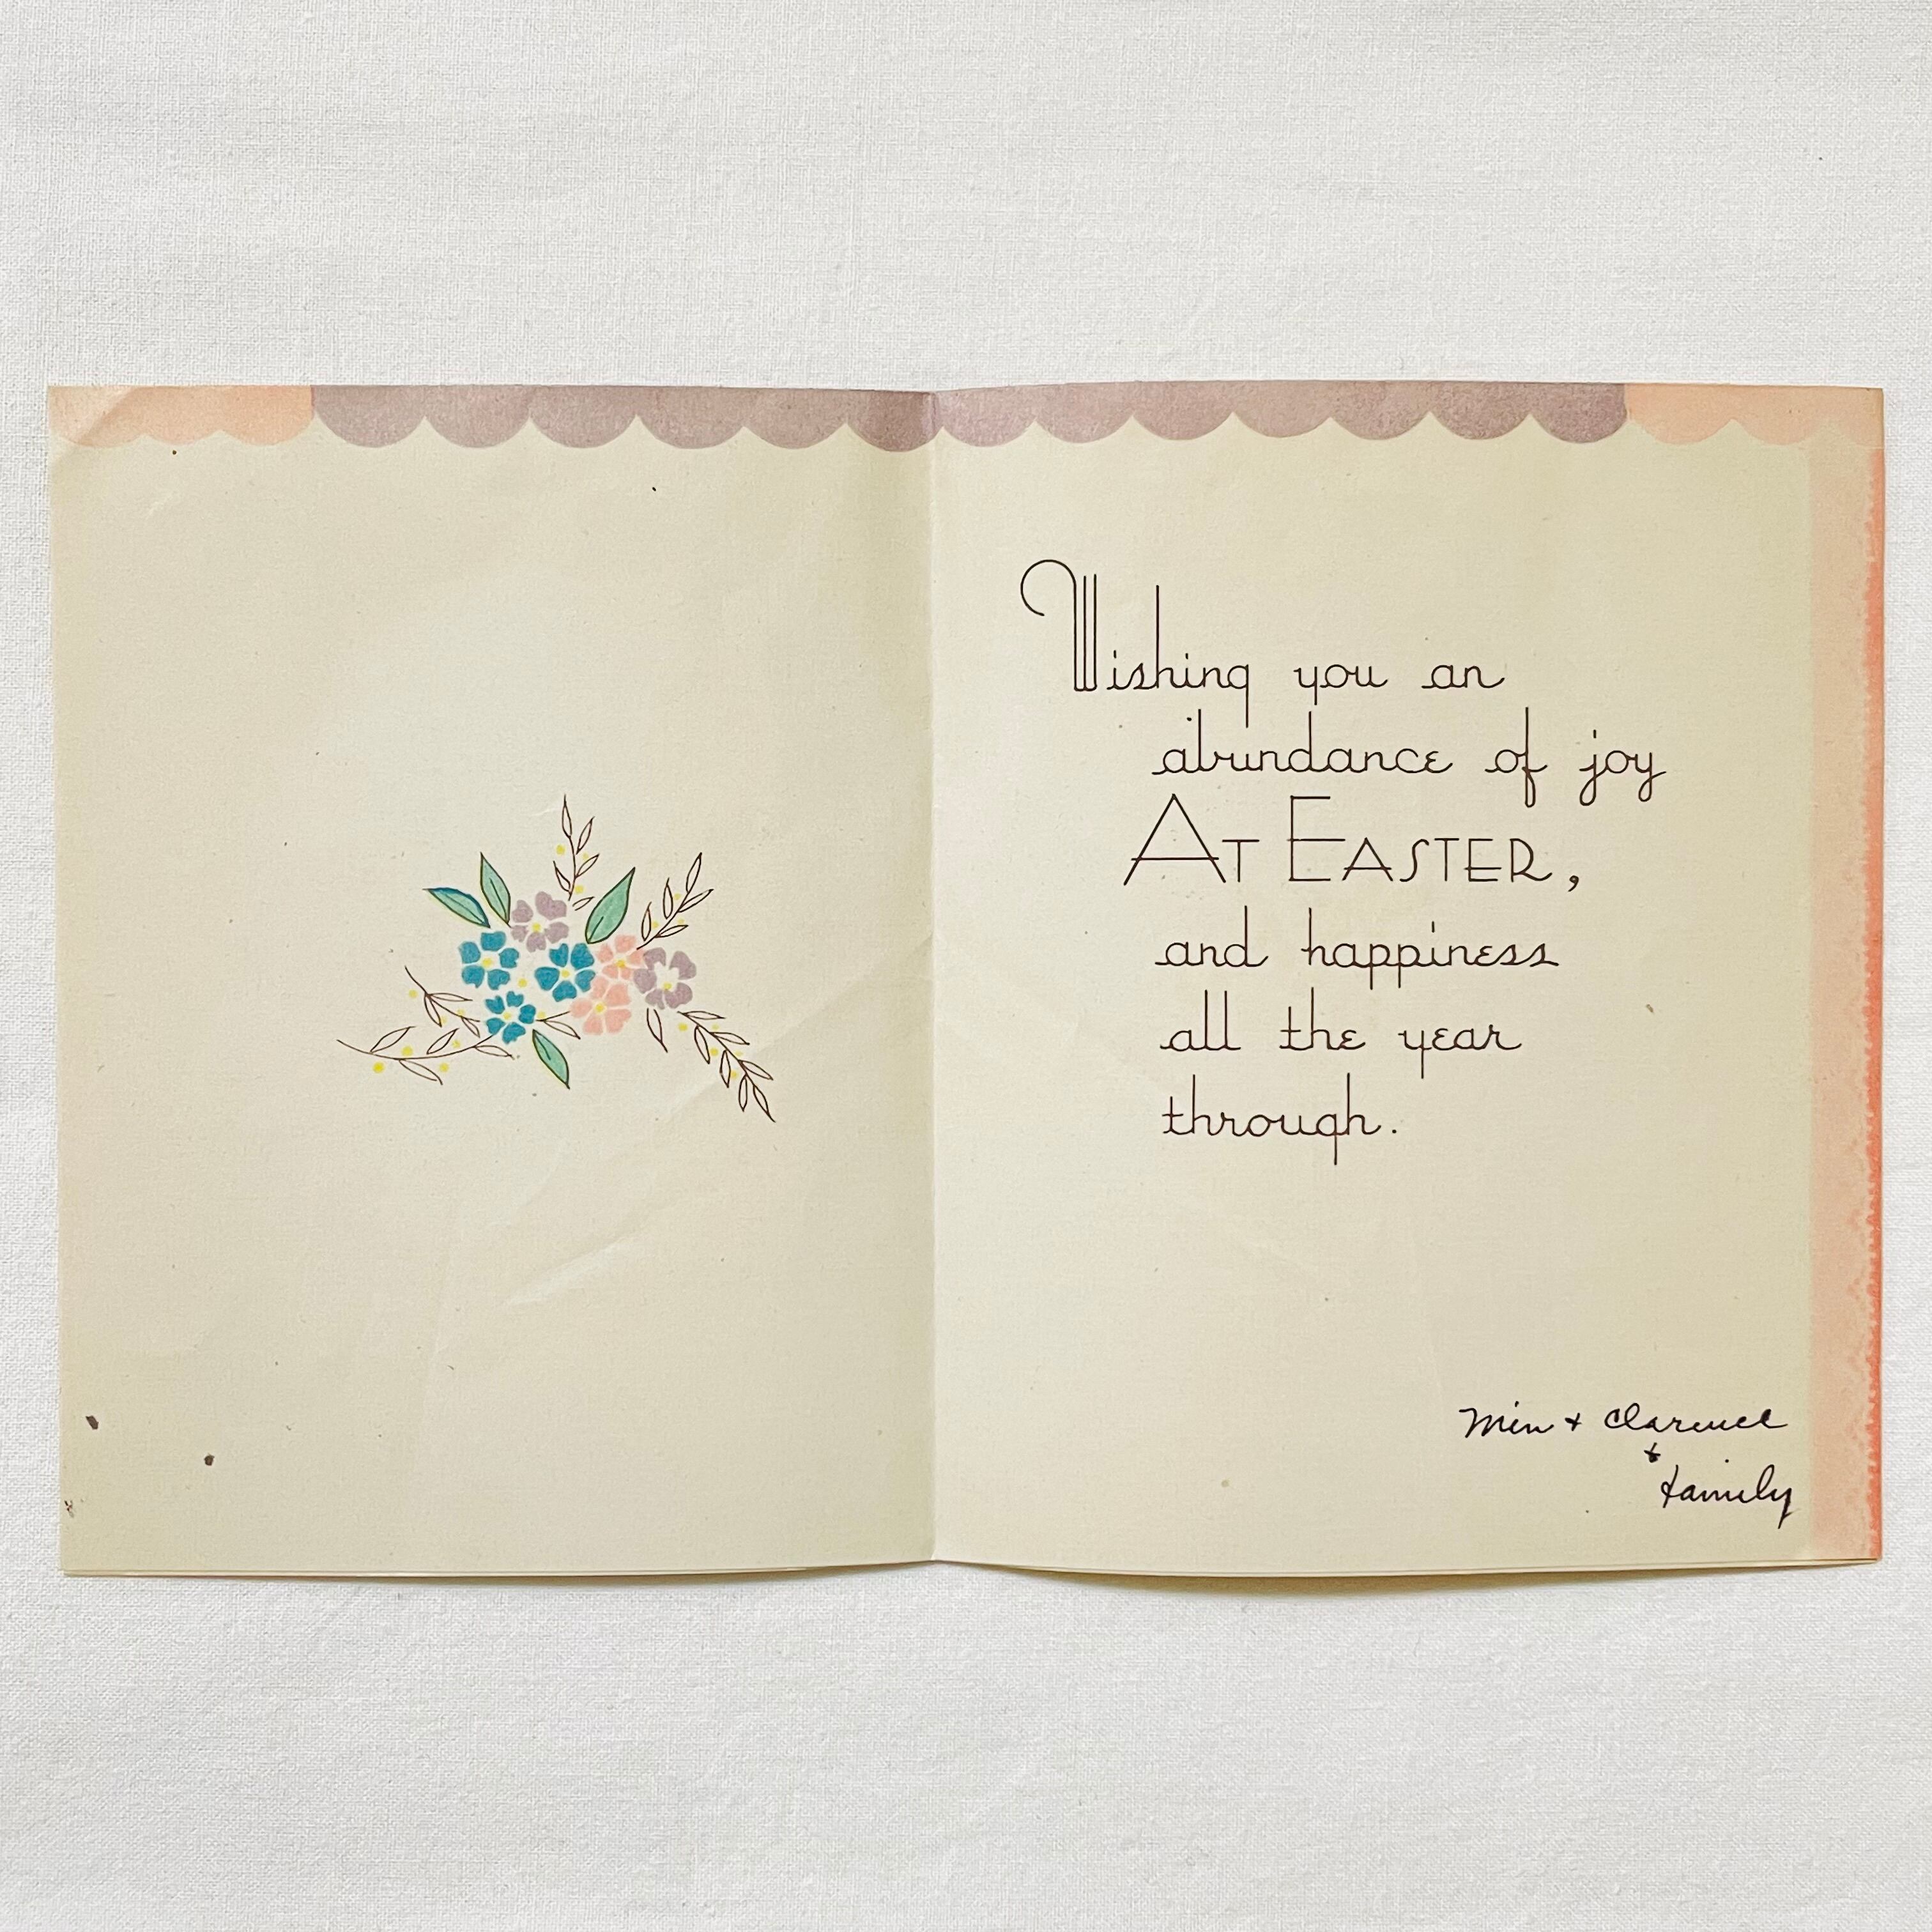 Wishing you an
abundance of joy
AT EASTER,
and happiness
all the year
through.
Min + Clarence
+
Family